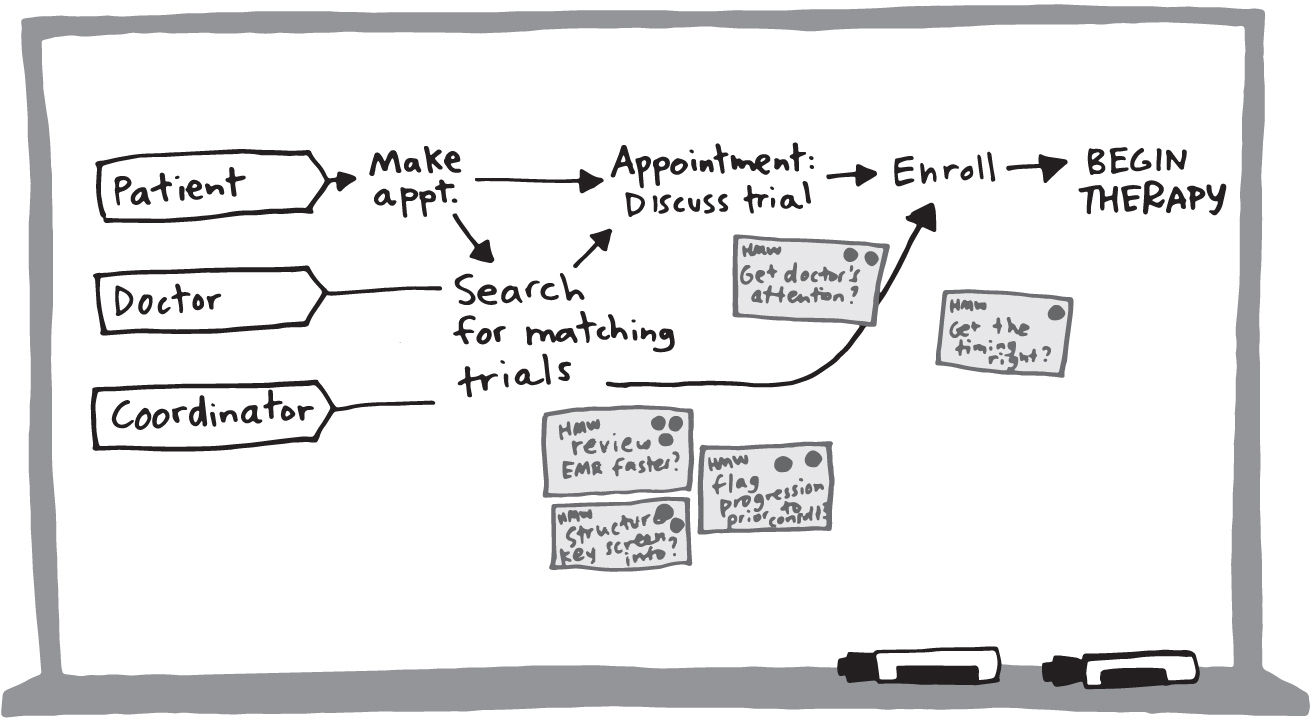 Patient
Make
appt.
Appointment:
Discuss trial
Enroll
BEGIN
THERAPY
Doctor
Search
for matching
trials
Coordinator
HMW
Get doctor's
attention?
HMW
Get the
timing
right?
HMW
review
EMR faster?
HMW
flag
progression
to
prior consult?
HMW
Structure
key screen
info?